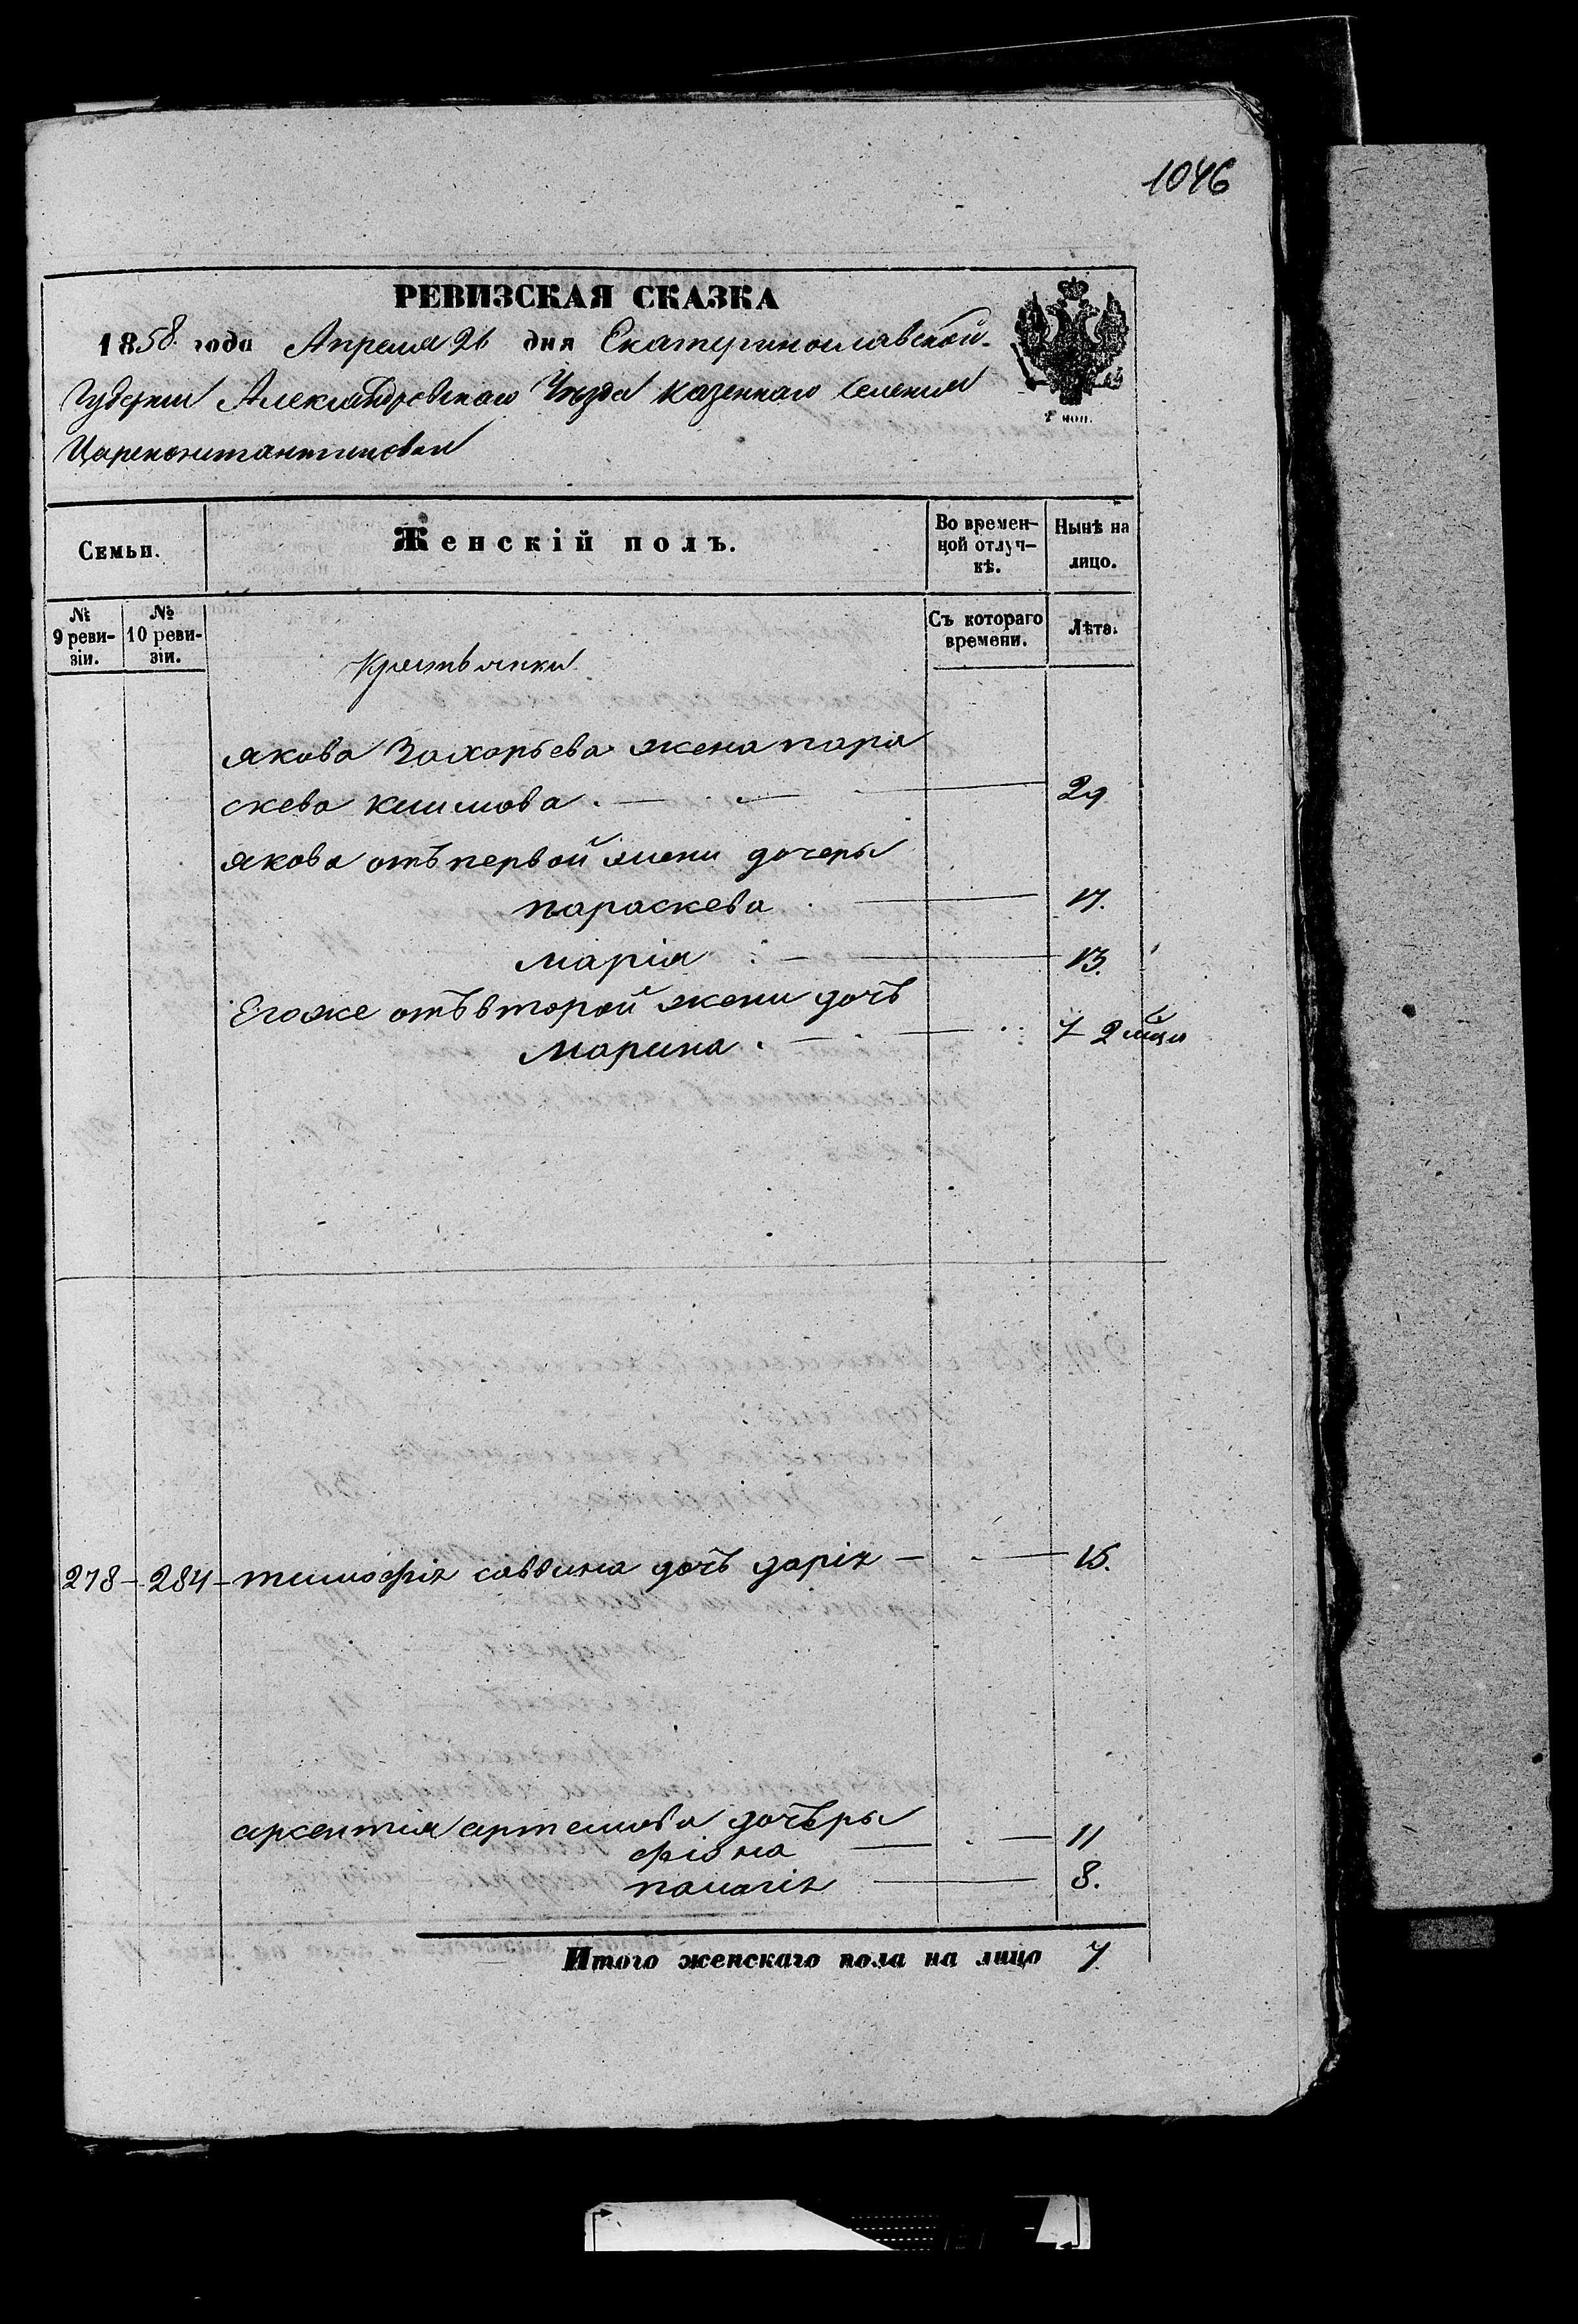 1046
РЕВИЗСКАЯ СКАЗКА
1858 года Апреля 26 дня Екатеринославской
Губерніи Александровскаго Уезда казеннаго Селенія
Цареконстантиновки
Семьи.
Женскій полъ.
Во времен-
ной отлуч-
кѣ.
Нынѣ на
лицо.
№
9 реви-
зіи.
№
10 реви-
зіи.
Съ котораго
времени.
Лѣта.
Крестьянки
якова Захорьева жена пара
скева климова 29
якова отъ первой жени дочеры
параскева 17.
марія 13.
Егоже отъ второй жени дочъ
марина 2
278 284 тимофія саввина дочъ дарія 15.
арсентия артемова дочъры
фіона 11
палагія 8.
Итого женскаго пола на лицо 7